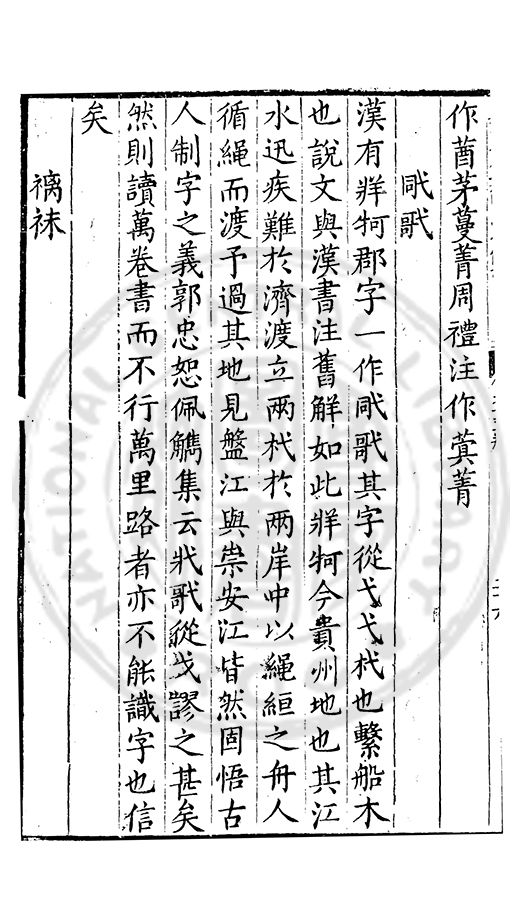 作茅蔓菁周禮注作蓂菁
漢有牂牁郡字一作其字從弋弋杙也繫船木
也說文與漢書注舊解如此牂牁今貴州地也其江
水迅疾難於濟渡立兩杙於兩岸中以繩絙之舟人
循繩而渡予過其地見盤江與崇安江皆然固悟古
人制字之義郭忠恕佩觿集云從戈謬之甚矣
然則讀萬卷書而不行萬里路者亦不能識字也信
矣
褵袜
NATIONAL LIBRARY